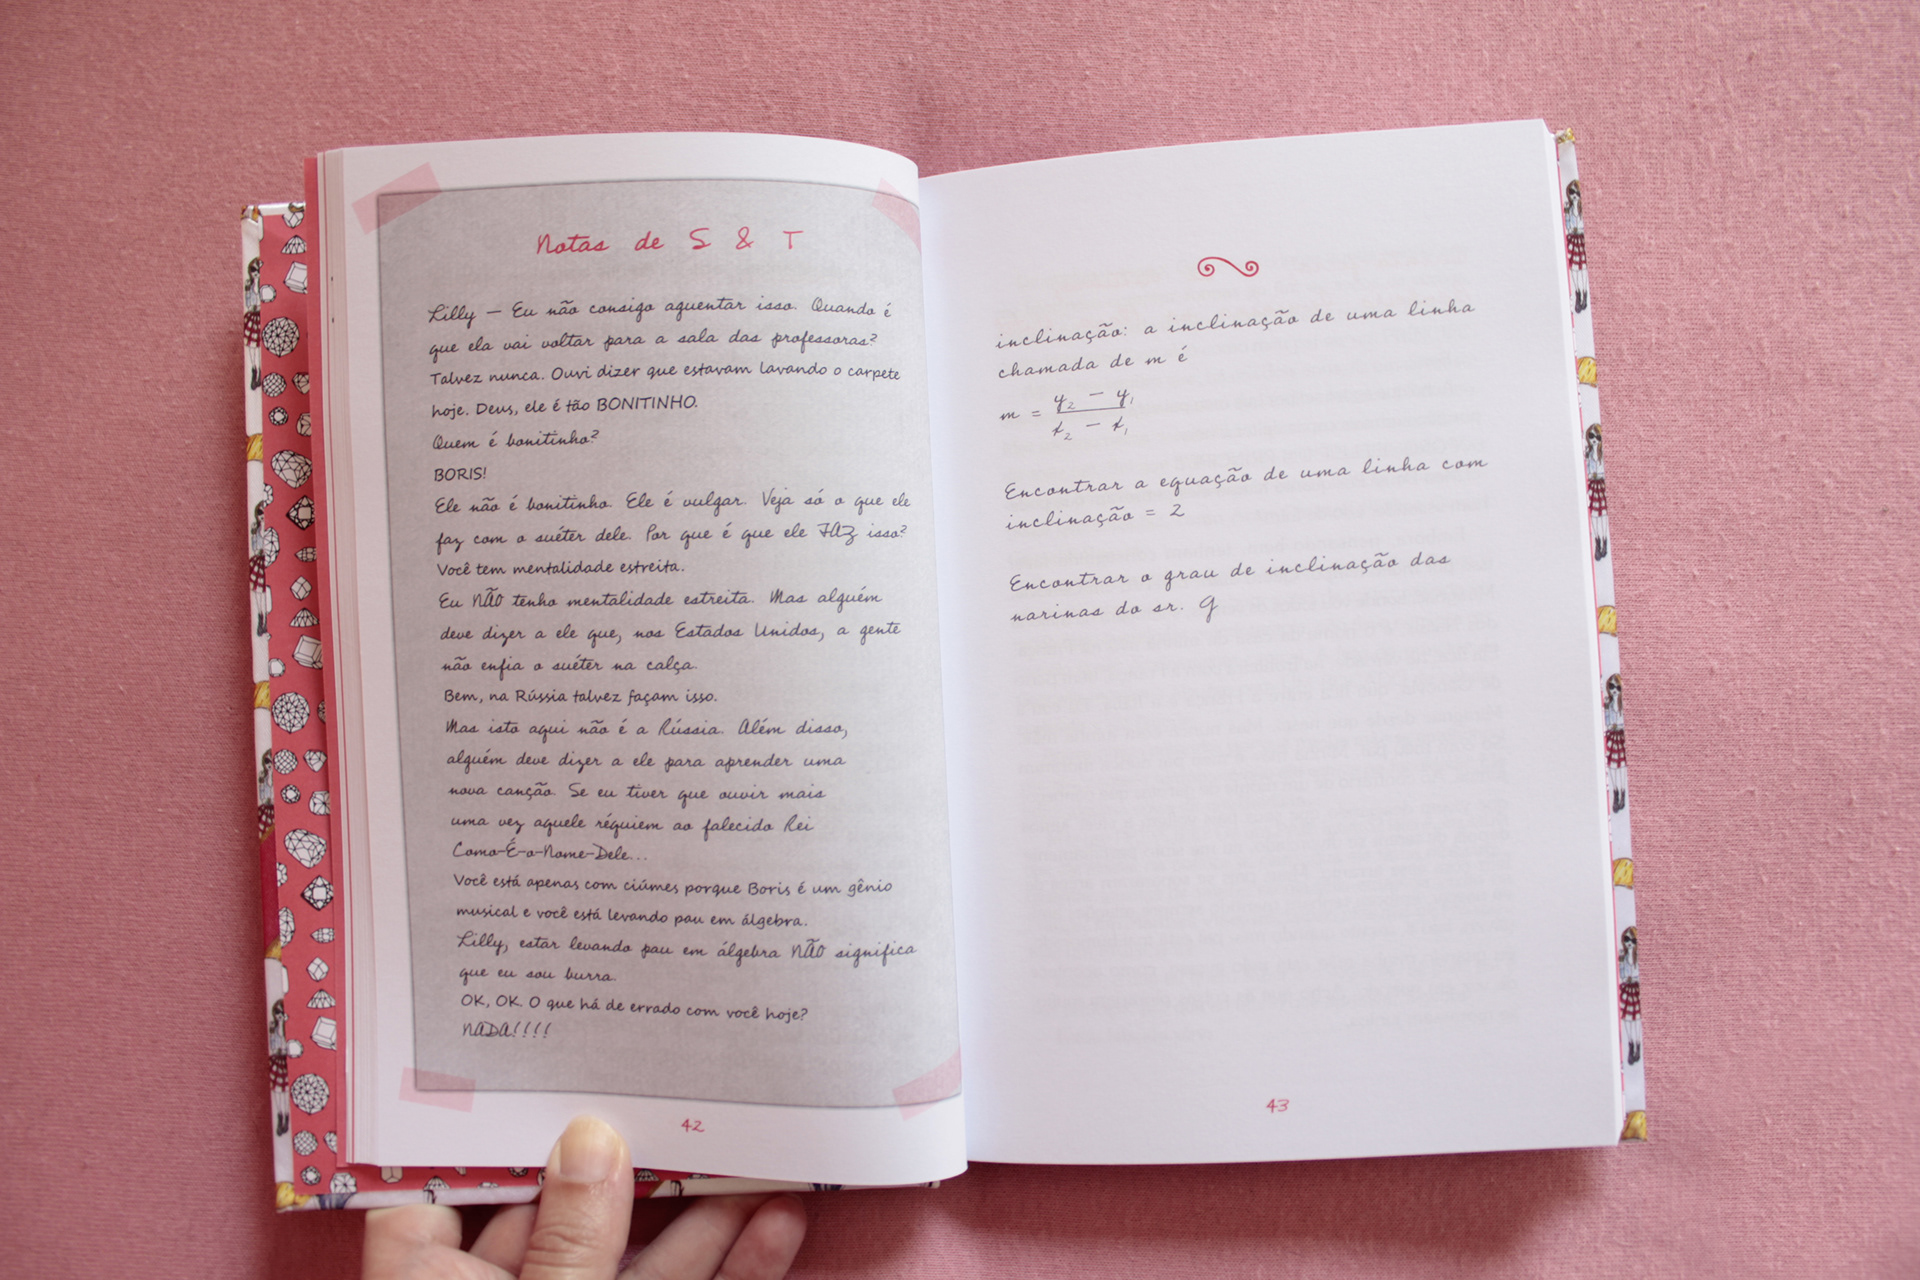 Notas de S & T
Lilly — Eu não consigo aguentar isso. Quando é
que ela vai voltar para a sala das professoras?
Talvez nunca. Ouvi dizer que estavam lavando o carpete
hoje. Deus, ele é tão BONITINHO.
Quem é bonitinho?
BORIS!
Ele não é bonitinho. Ele é vulgar. Veja só o que ele
faz com o suéter dele. Por que é que ele FAZ isso?
Você tem mentalidade estreita.
Eu NÃO tenho mentalidade estreita. Mas alguém
deve dizer a ele que, nos Estados Unidos, a gente
não enfia o suéter na calça.
Bem, na Rússia talvez façam isso.
Mas isto aqui não é a Rússia. Além disso,
alguém deve dizer a ele para aprender uma
nova canção. Se eu tiver que ouvir mais
uma vez aquele réquiem ao falecido Rei
Como-É-o-Nome-Dele...
Você está apenas com ciúmes porque Boris é um gênio
musical e você está levando pau em álgebra.
Lilly, estar levando pau em álgebra NÃO significa
que eu sou burra.
OK, OK. O que há de errado com você hoje?
NADA!!!!
42
inclinação: a inclinação de uma linha
chamada de m é
m = y₂ − y₁
x₂ − x₁
Encontrar a equação de uma linha com
inclinação = 2
Encontrar o grau de inclinação das
narinas do sr. G
43